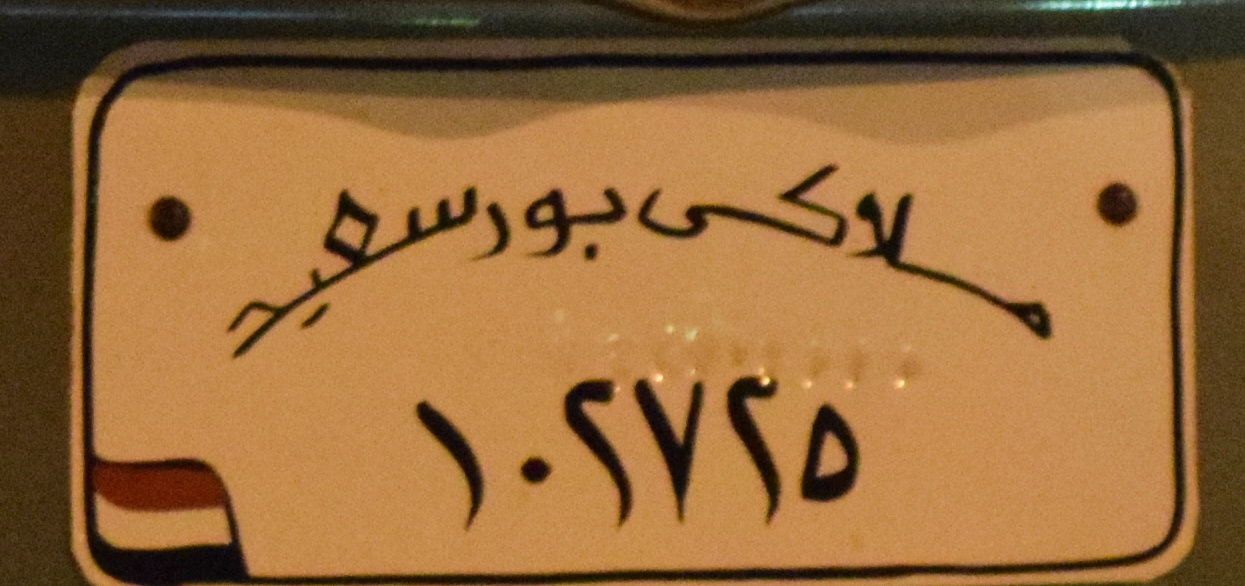 ملاكى بورسعيد
١٠٢٧٢٥